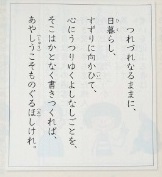 つれづれなるままに、
日暮らし、
すずりに向かひて、
心にうつりゆくよしなしごとを、
そこはかとなく書きつくれば、
あやしうこそものぐるほしけれ。